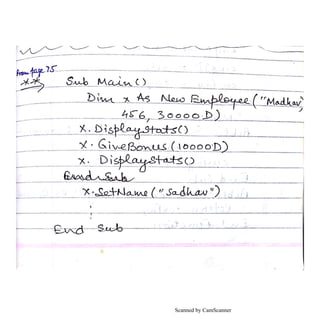 from page 75
** Sub Main()
Dim x As New Employee("Madhav",
456, 30000D)
x.DisplayStats()
x.GiveBonus(10000D)
x.DisplayStats()
End Sub
x.SetName("Sadhav")
⋮
End Sub
Scanned by CamScanner